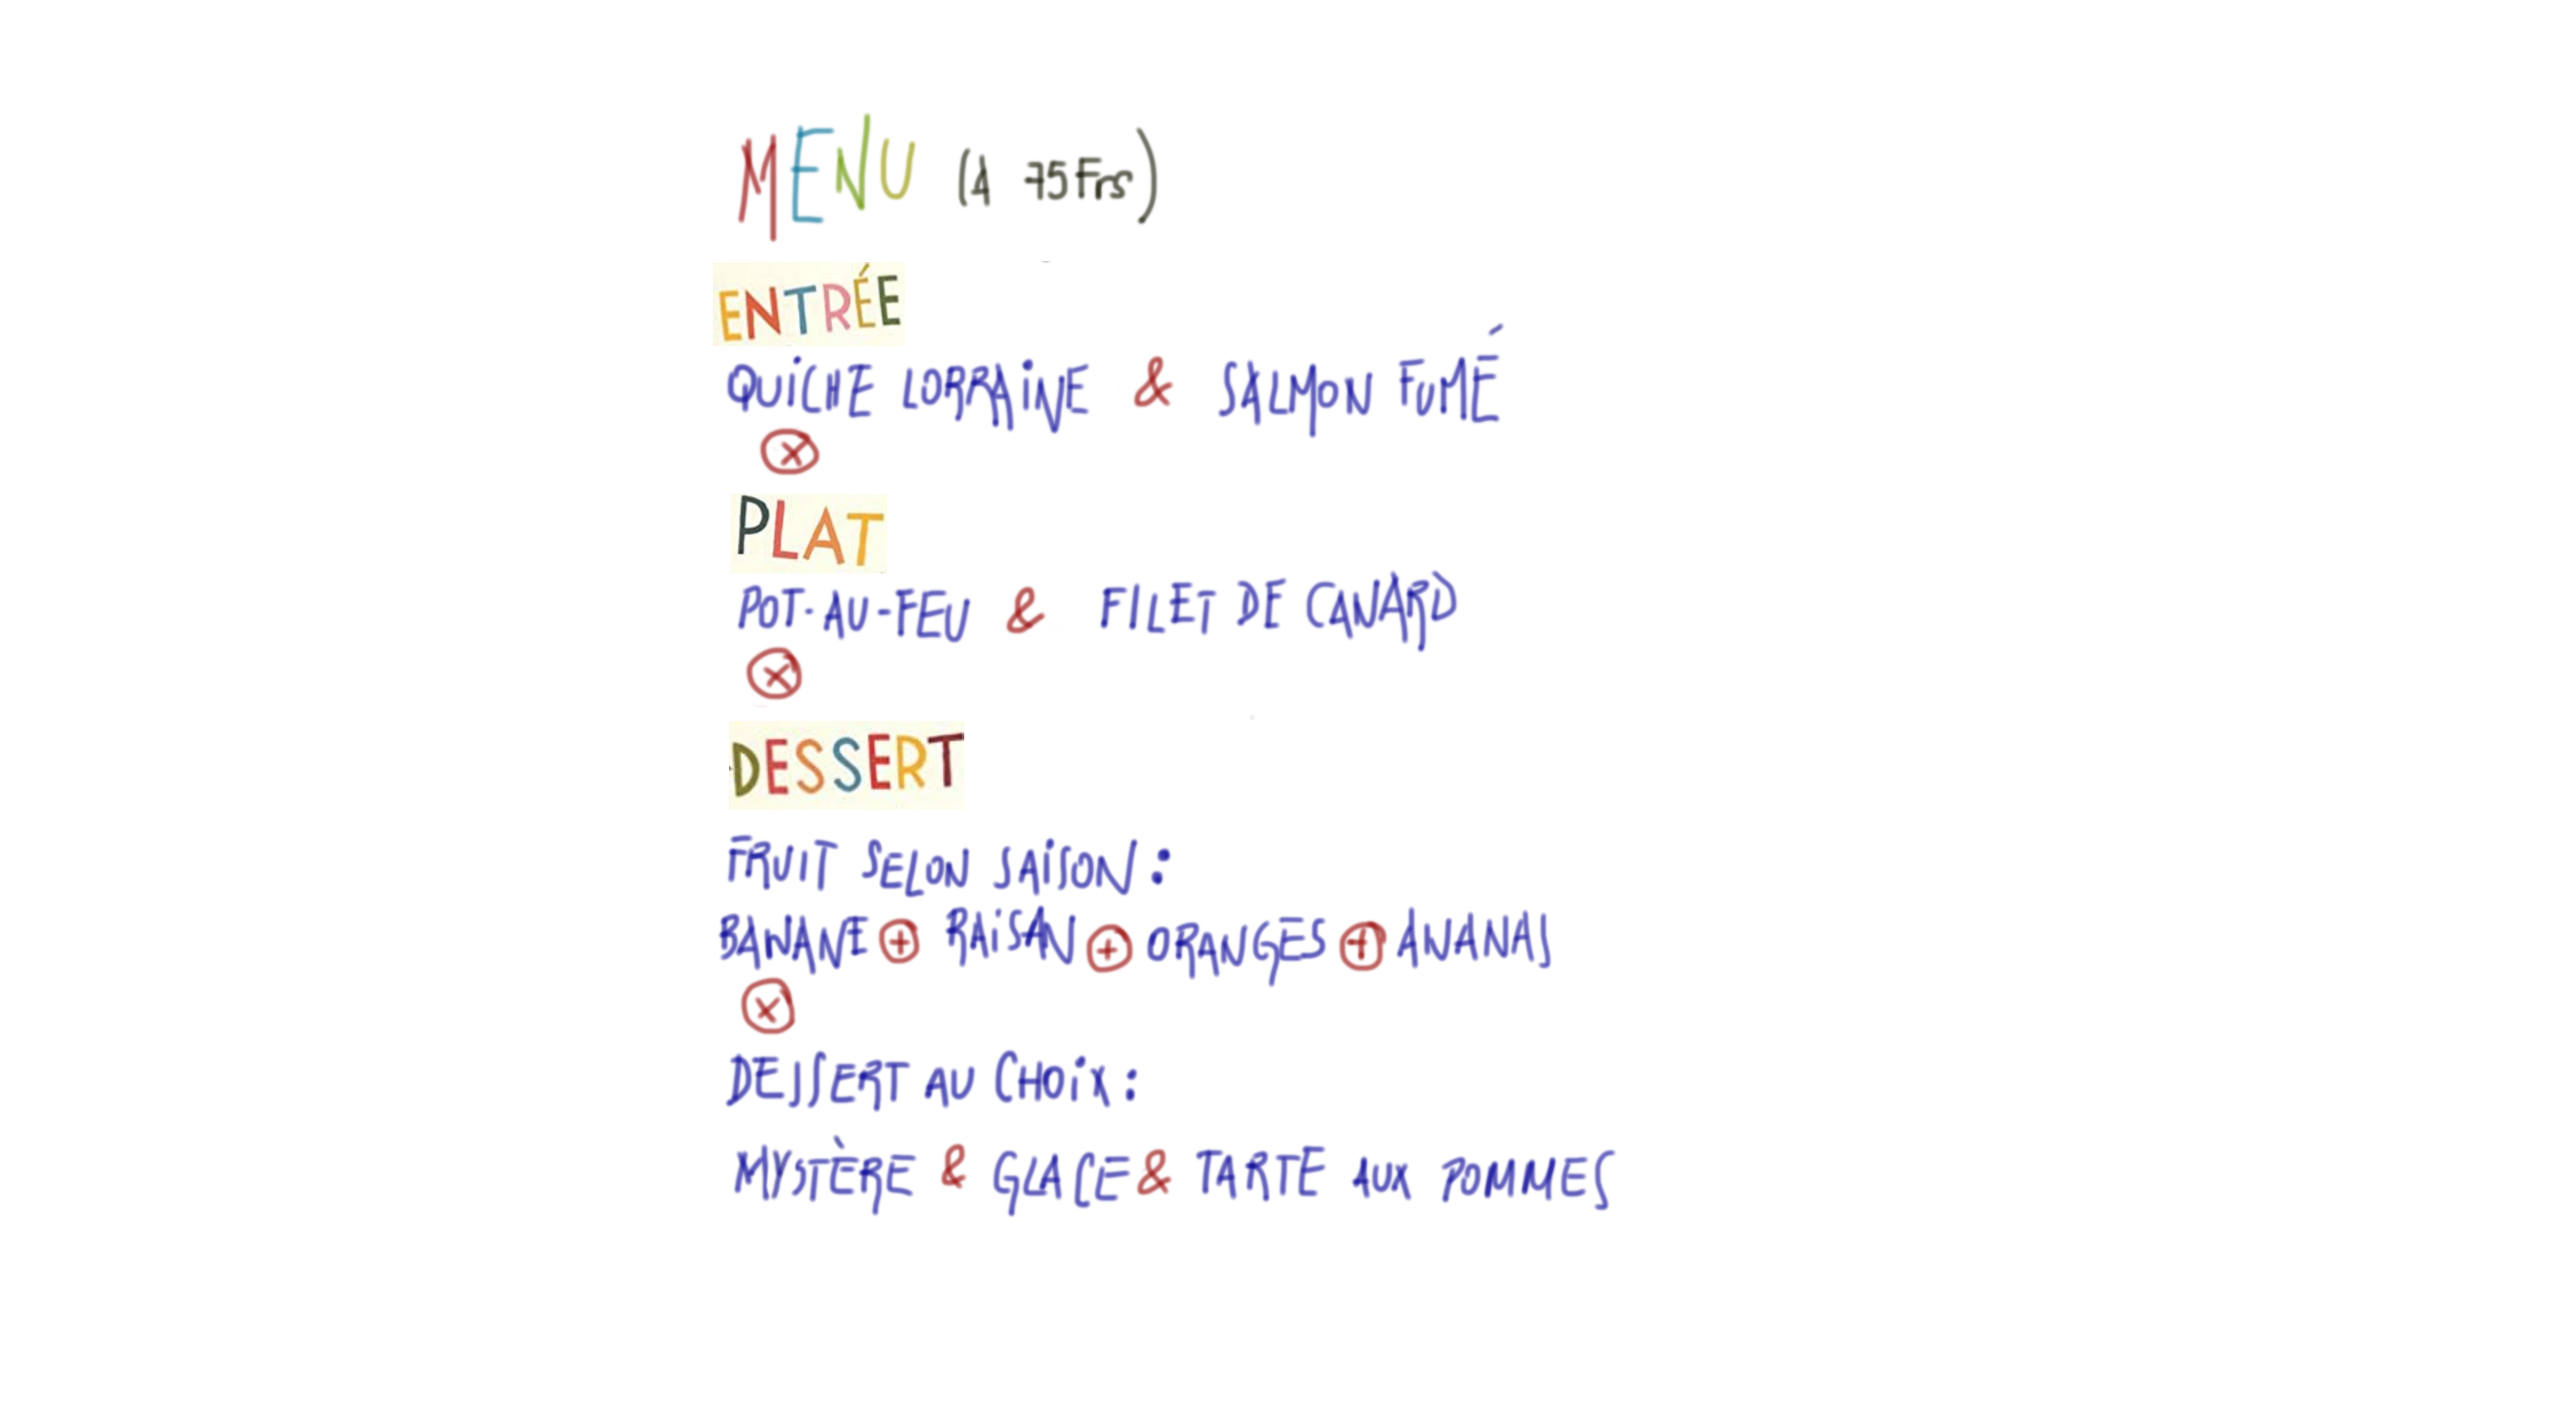 MENU (A 75 Frs)
ENTRÉE
QUiCHE LORRAiNE & SALMON FUMÉ
⊗
PLAT
POT-AU-FEU & FILET DE CANARD
⊗
DESSERT
FRUIT SELON SAiSON :
BANANE ⊕ RAiSAN ⊕ ORANGES ⊕ ANANAS
⊗
DESSERT AU CHOiX :
MYSTÈRE & GLACE & TARTE AUX POMMES